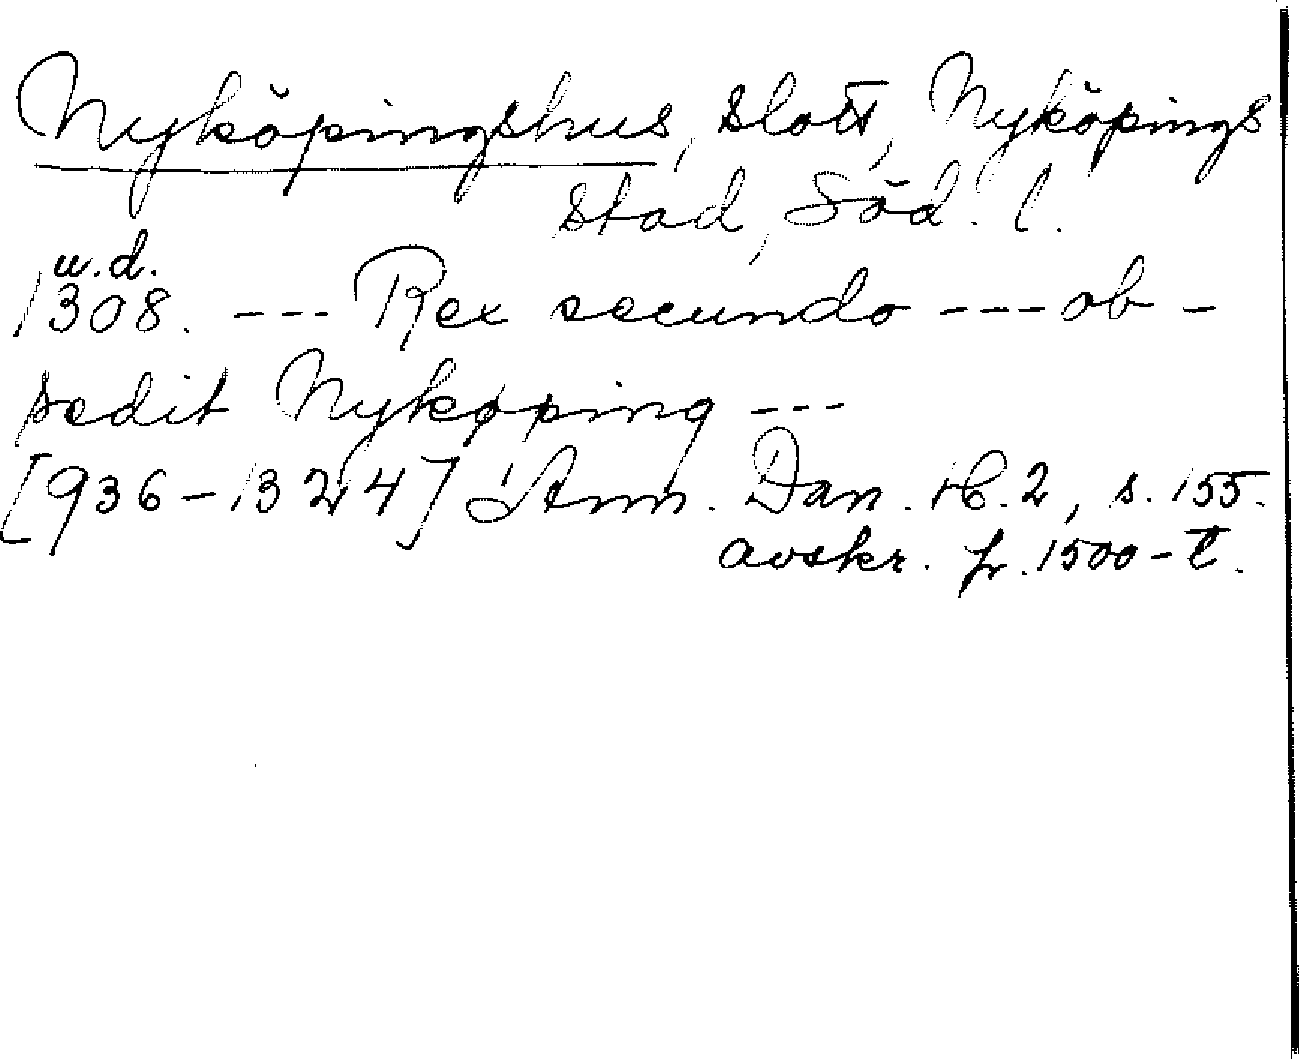 Nyköpingshus, slott, Nyköpings
stad, Söd. l.
u.d.
1308. --- Rex secundo --- ob-
sedit Nykøping ---
[936-1324] Ann. Dan. H. 2, s. 155.
avskr. fr. 1500-t.